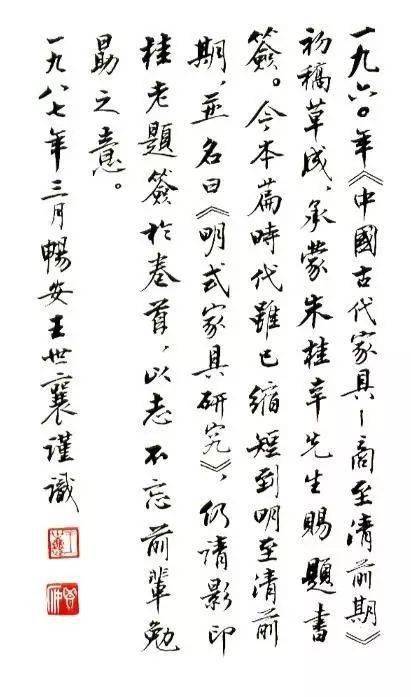 一九六〇年《中國古代家具—商至清前期》
初稿草成，承蒙朱桂辛先生賜題書
簽。今本篇時代雖已縮短到明至清前
期，並名曰《明式家具研究》，仍請影印
桂老題簽於卷首，以志不忘前輩勉
勖之意。
一九八七年三月暢安王世襄謹識